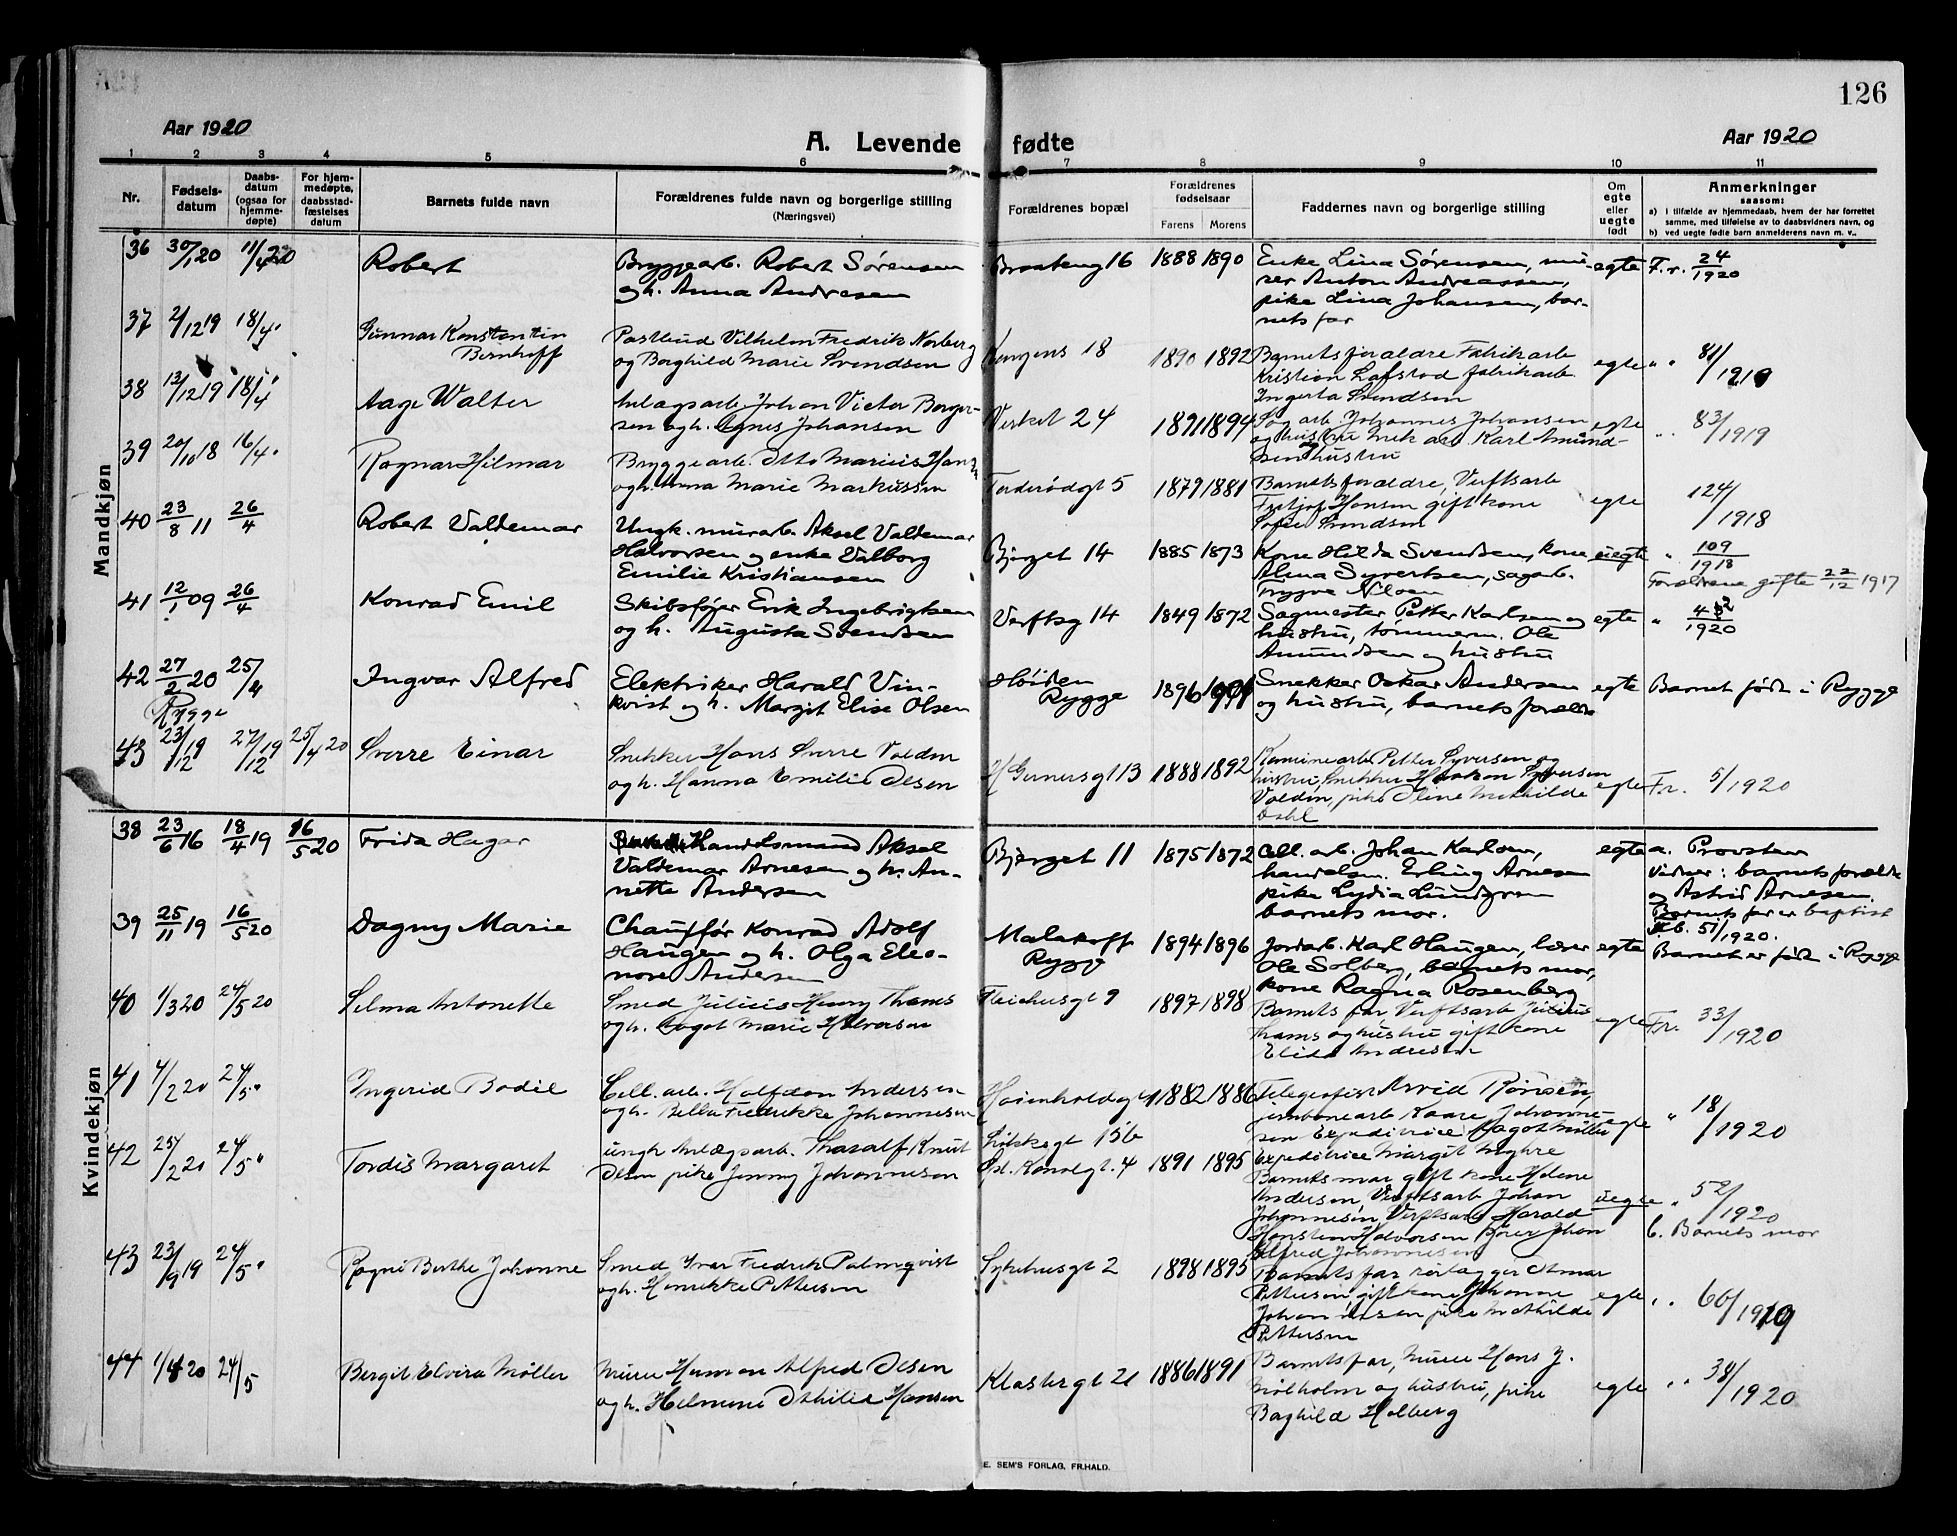 126
Aar 1920
A. Levende fødte
Aar 1920
1 2 3 4 5 6 7 8 9 10 11
Nr.
Fødsels-
datum
Daabs-
datum
(ogsaa for
hjemme-
døpte)
For hjem-
medøpte,
daabsstad-
fæstelses
datum
Barnets fulde navn
Forældrenes fulde navn og borgerlige stilling
(Næringsvei)
Forældrenes bopæl
Forældrenes
fødselsaar
Farens Morens
Faddernes navn og borgerlige stilling
Om
egte
eller
uegte
født
Anmerkninger
saasom:
a) i tilfælde av hjemmedaab, hvem der har forrettet
samme, med tilføielse av to daabsvidners navn, og
b) ved uegte fødte barn anmelderens navn m. v.
Mandkjøn
36 30/1 20 11/4 20
Robert
Bryggearb. Robert Sørensen
og h. Anna Andresen
Braateng 16
1888 1890
Enke Lina Sørensen, mu-
rer Anton Andreassen,
pike Lina Johansen, bar-
nets far
egte
F. r. 24/1920
37 2/12 19 18/4 "
Gunnar Konstantin
Bernhoff
Postbud Vilhelm Fredrik Norberg
og Borghild Marie Svendsen
Kongens 18
1890 1892
Barnets forældre Fabrikarb
Kristian Lafstad fabrikarb.
Svendsen
egte
" " 81/1919
38 13/12 19 18/4 "
Aage Walter
Anlægsarb. Johan Victor Borger-
sen og h. Agnes Johansen
Verket 24
1891 1894
Sag arb Johannes Johansen
og hustru Mek arb Karl Amund-
sen hustru
egte
" 83/1919
39 20/10 18 16/4 "
Ragnar Hilmar
Bryggearb. Otto Marius Hansen
og h. Anna Marie Markussen
Tarderødgt 5
1879 1881
Barnets forældre, Verftsarb
Fritjof Hansen gift kone
Sofie Svendsen
egte
124/1918
40 23/8 11 26/4
Robert Valdemar
Ungk. murarb. Aksel Valdemar
Halvorsen og enke Valborg
Emilie Kristiansen
Bjerget 14
1885 1873
Kone Hilda Svendsen, kone
Alma Syvertsen, sagarb.
Trygve Nilsen
uegte
" 109/1918
Forældrene gifte 22/12 1917
41 12/1 09 26/4
Konrad Emil
Skibsfører Erik Ingebrigtsen
og h. Augusta Svendsen
Verftsg 14
1849 1872
Sagmester Petter Karlsen og
hustru, tømmerm. Ole
Amundsen og hustru
egte
" 42/1920
42 27/2 20 25/4
Rygge
Ingvar Alfred
Elektriker Harald Vin-
kvist og h. Margit Elise Olsen
Høiden
Rygge
1896
Snekker Oskar Andersen
og hustru, barnets forældre
egte
Barnet født i Rygge
43 23/12 19 27/12 19 25/4 20
Sverre Einar
Snekker Hans Sverre Valdin
og h. Hanna Emilie Olsen
H Gernersgt 13
1888 1892
Petter Syversen og
hustru, Snekker Haakon Syversen
Valdin, pike Oline Mathilde
Dahl
egte
F. r. 5/1920
Kvindekjøn
38 23/6 16 18/4 19 16/5 20
Frida Hagar
Handelsmand Aksel
Valdemar Arnesen og h. An-
nette Andersen
Bjerget 11
1875 1872
Cell. arb. Johan Karlsen,
handelsm. Erling Arnesen
pike Lydia Lundgren
barnets mor.
egte
a. Provsten
vidner: barnets forældre
og Astrid Arnesen.
Barnets far er baptist
51/1920.
39 25/11 19 16/5 20
Dagny Marie
Chauffør Konrad Adolf
Haugen og h. Olga Eleo-
nore Andersen
Malakoff
Rygge
1894 1896
Jordarb. Karl Haugen, lærer
Ole Solberg, barnets mor,
kone Ragna Rosenberg
egte
Barnet er født i Rygge
40 1/3 20 24/5 20
Selma Antonette
Smed Julius Henry Thams
og h. Dagot Marie Halvorsen
Fleichusgt 9
1897 1898
Barnets far, Verftsarb Julius
Thams og hustru gift kone
Elida Andresen
egte
F. r. 33/1920
41 4/2 20 24/5 "
Ingerid Bodil
Cell. arb. Halfdan Andersen
og h. Bella Fredrikke Johannesen
1882 1886
Telegrafist Arvid
jernbanearb Kaare Johanne-
sen Expeditrice Dagot Møller
Expeditrice Margit
egte
" 18/1920
42 25/2 20 24/5 "
Tordis Margaret
ungk Anlægsarb. Tharalf Knut
Olsen pike Jenny Johannesen
15b
Kanalgt. 4
1891 1895
Barnets mor gift kone Helene
Andersen Verftsarb Johan
Johannesen Verftsarb Harald
Halvorsen Johan
Alfred Johannesen
uegte
" 52/1920
b. Barnets mor
43 23/9 19 24/5 "
Ragni Berthe Johanne
Smed Ivar Fredrik Palmqvist
og h. Henrikke Pettersen
Sykehusgt 2
1898 1895
Barnets far rørlægger Otmar
Pettersen gift kone Johanne
Johannesen pike Mathilde
Pettersen
egte
" " 66/1919
44 1/4 20 24/5
Bergit Elvira Møller
Murer Herman Alfred Olsen
og h. Helmine Othilie Hansen
Klostergt 21
1886 1891
Barnets far, Murer Hans J.
Mølholm og hustru, pike
Baghild Holberg
egte
" " 38/1920
E. SEM'S FORLAG, FR.HALD.